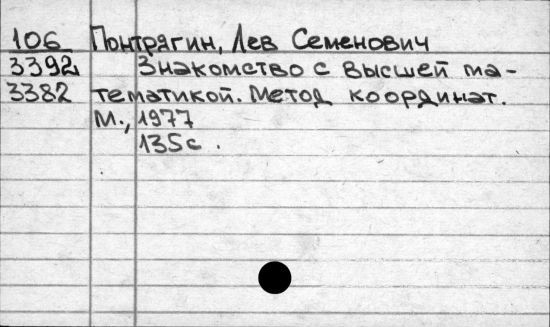 106 Понтрягин, Лев Семенович
3392 Знакомство с высшей ма-
3382 тематикой. Метод координат.
М., 1977
135с.